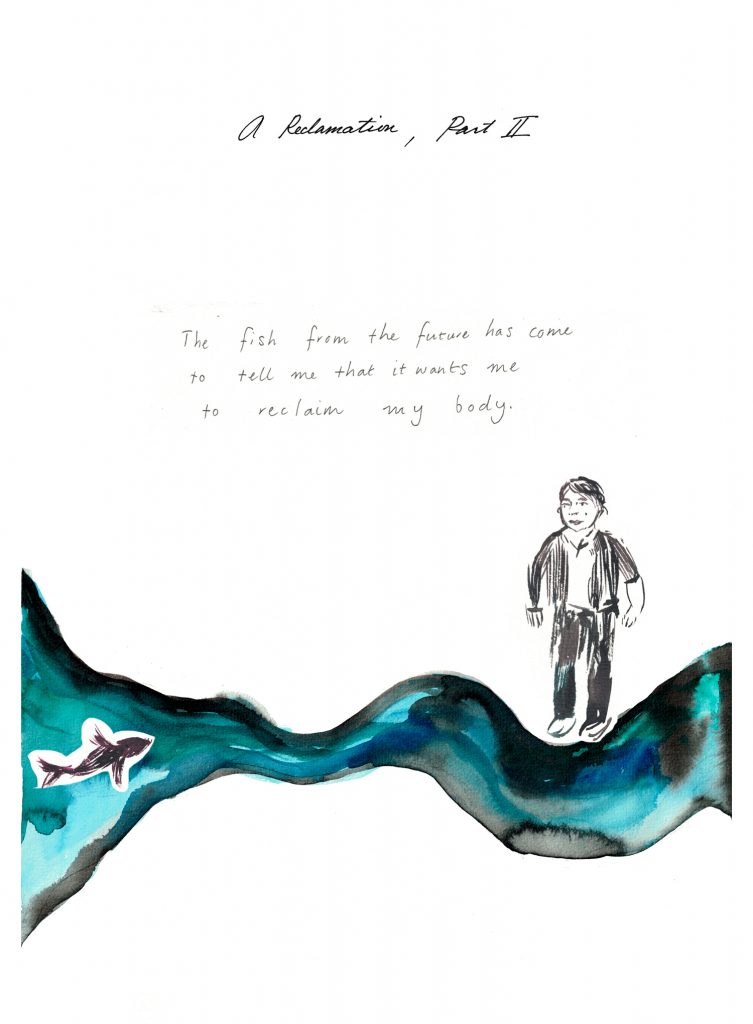 A Reclamation, Part II
The fish from the future has come
to tell me that it wants me
to reclaim my body.